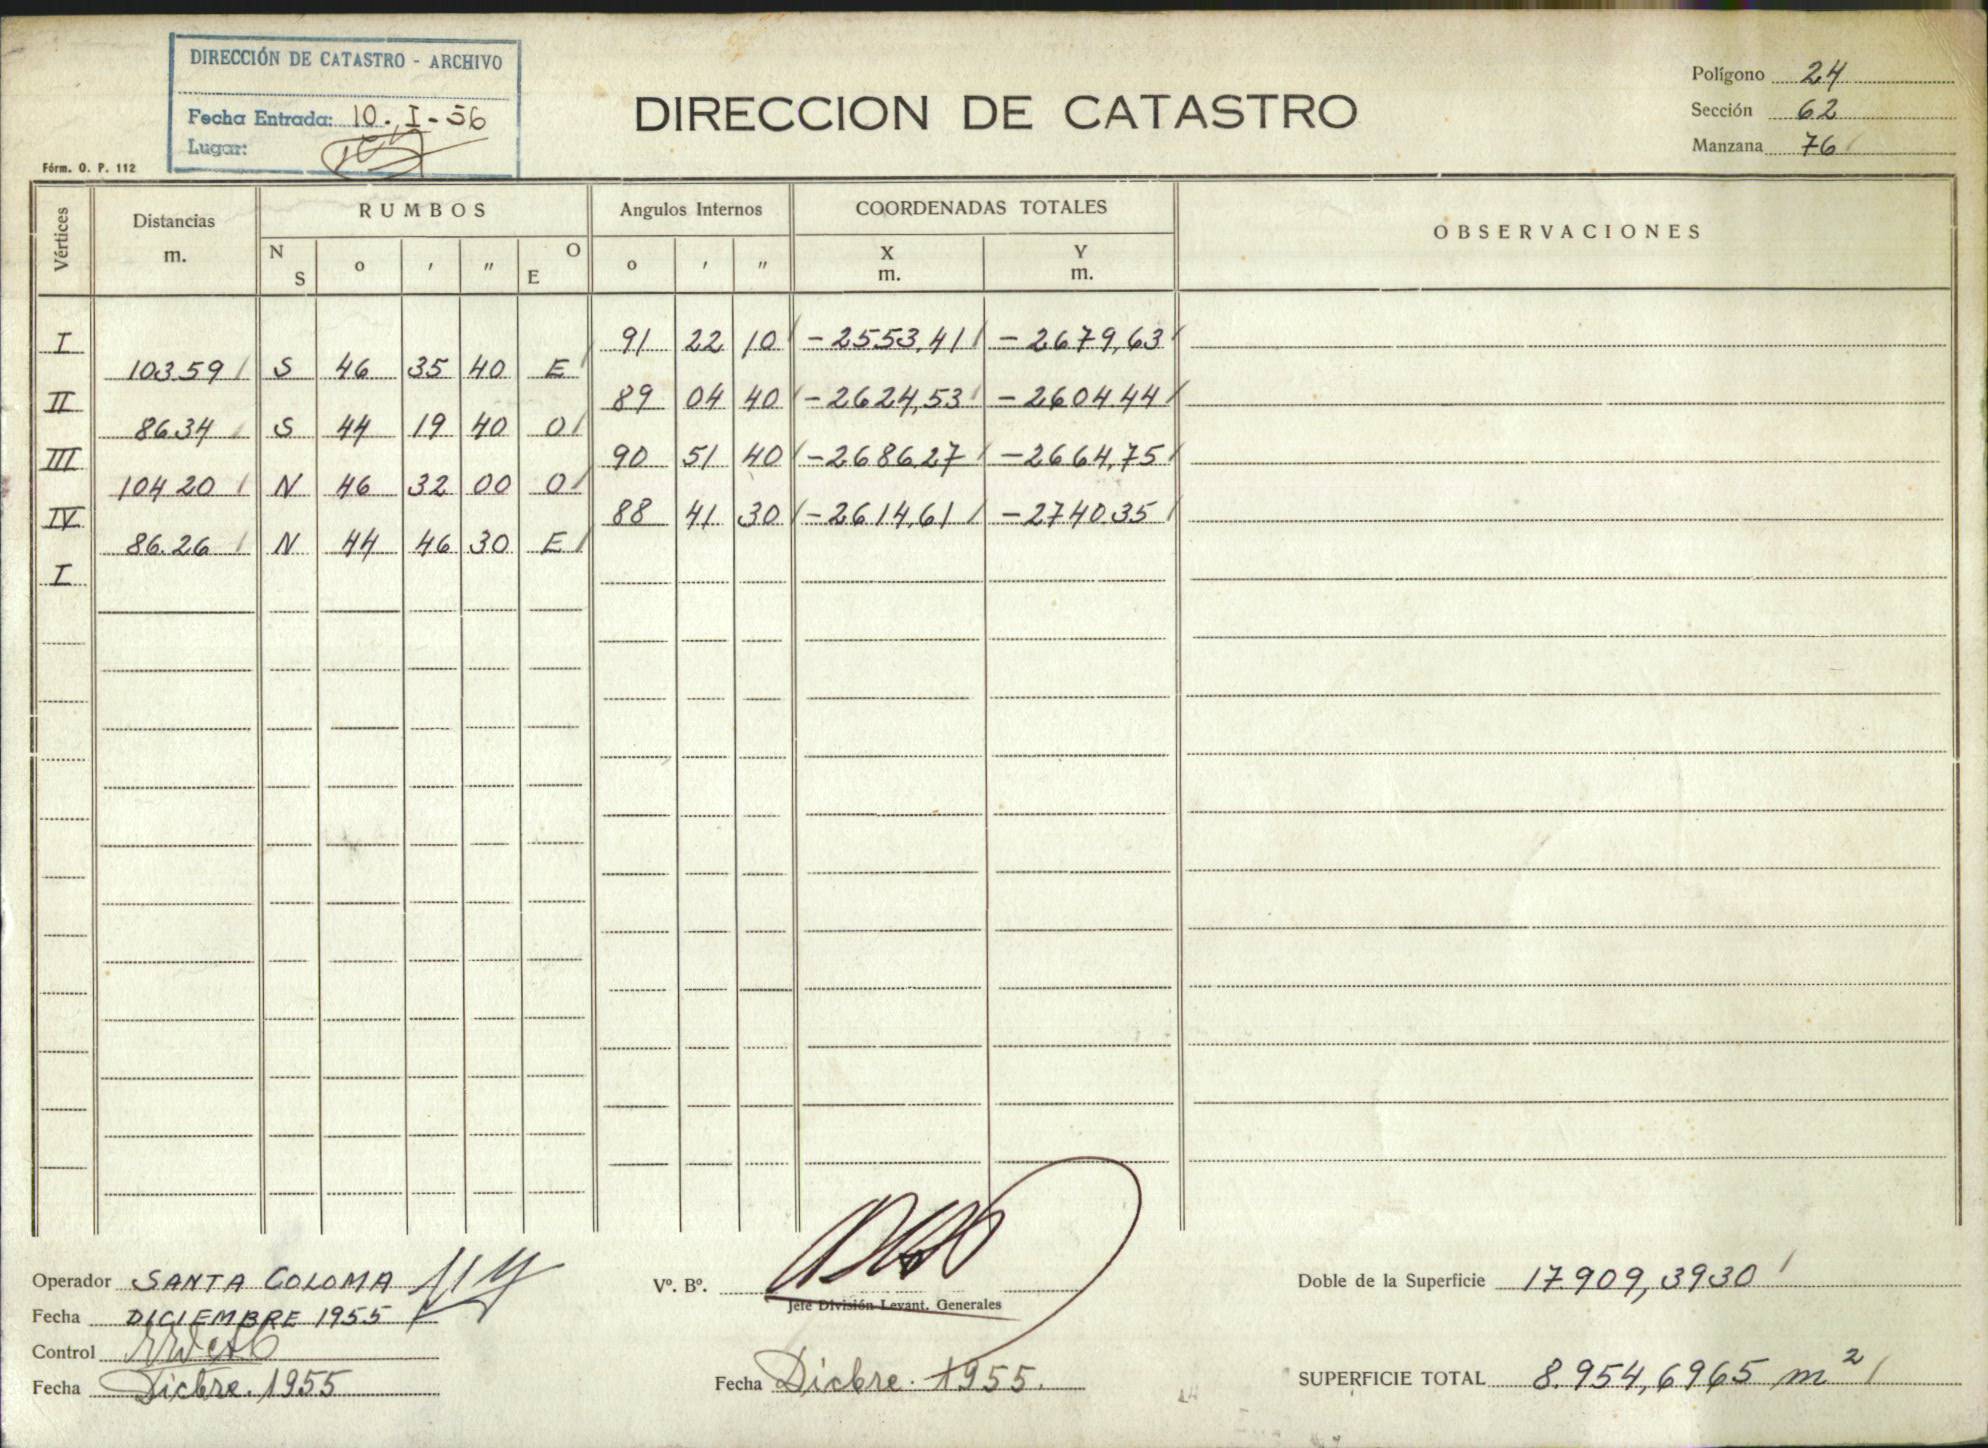 DIRECCIÓN DE CATASTRO - ARCHIVO
Fecha Entrada: 10. I - 56
Lugar:
DIRECCION DE CATASTRO
Polígono 24
Sección 62
Manzana 76
Fórm. O. P. 112
Vértices Distancias m. RUMBOS Angulos Internos COORDENADAS TOTALES OBSERVACIONES
N S o ′ ″ O E o ′ ″ X m. Y m.
I 91 22 10 -2553,41 -2679,63
103.59 S 46 35 40 E
II 89 04 40 -2624,53 -2604.44
86.34 S 44 19 40 O
III 90 51 40 -2686.27 -2664,75
104 20 N 46 32 00 O
IV 88 41 30 -2614.61 -2740.35
86.26 N 44 46 30 E
I
Operador SANTA COLOMA
Fecha DICIEMBRE 1955
Control
Fecha Dicbre. 1955
Vº. Bº.
Jefe División Levant. Generales
Fecha Dicbre. 1955.
Doble de la Superficie 17.909,3930
SUPERFICIE TOTAL 8.954,6965 m²